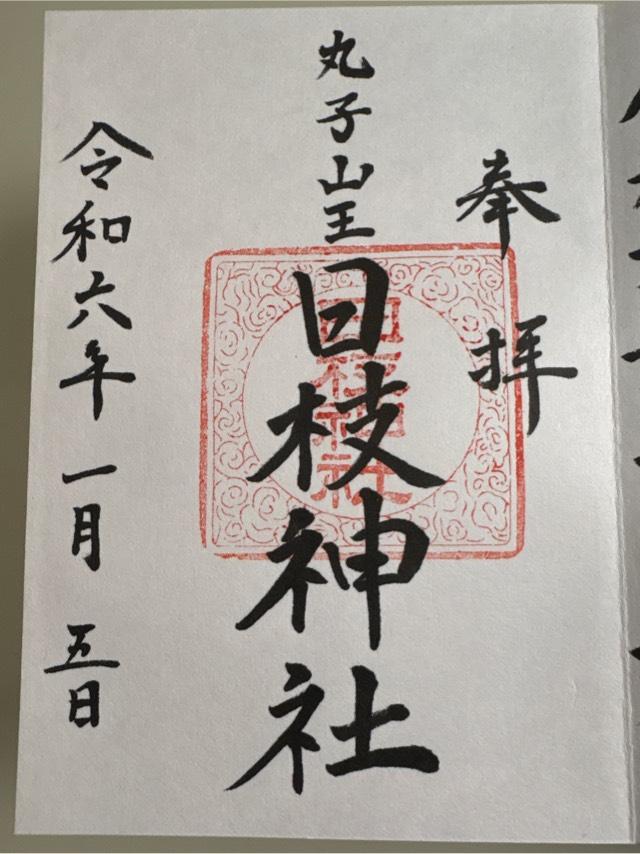 奉拝
丸子山王
日枝神社
日枝神社
令和六年一月五日